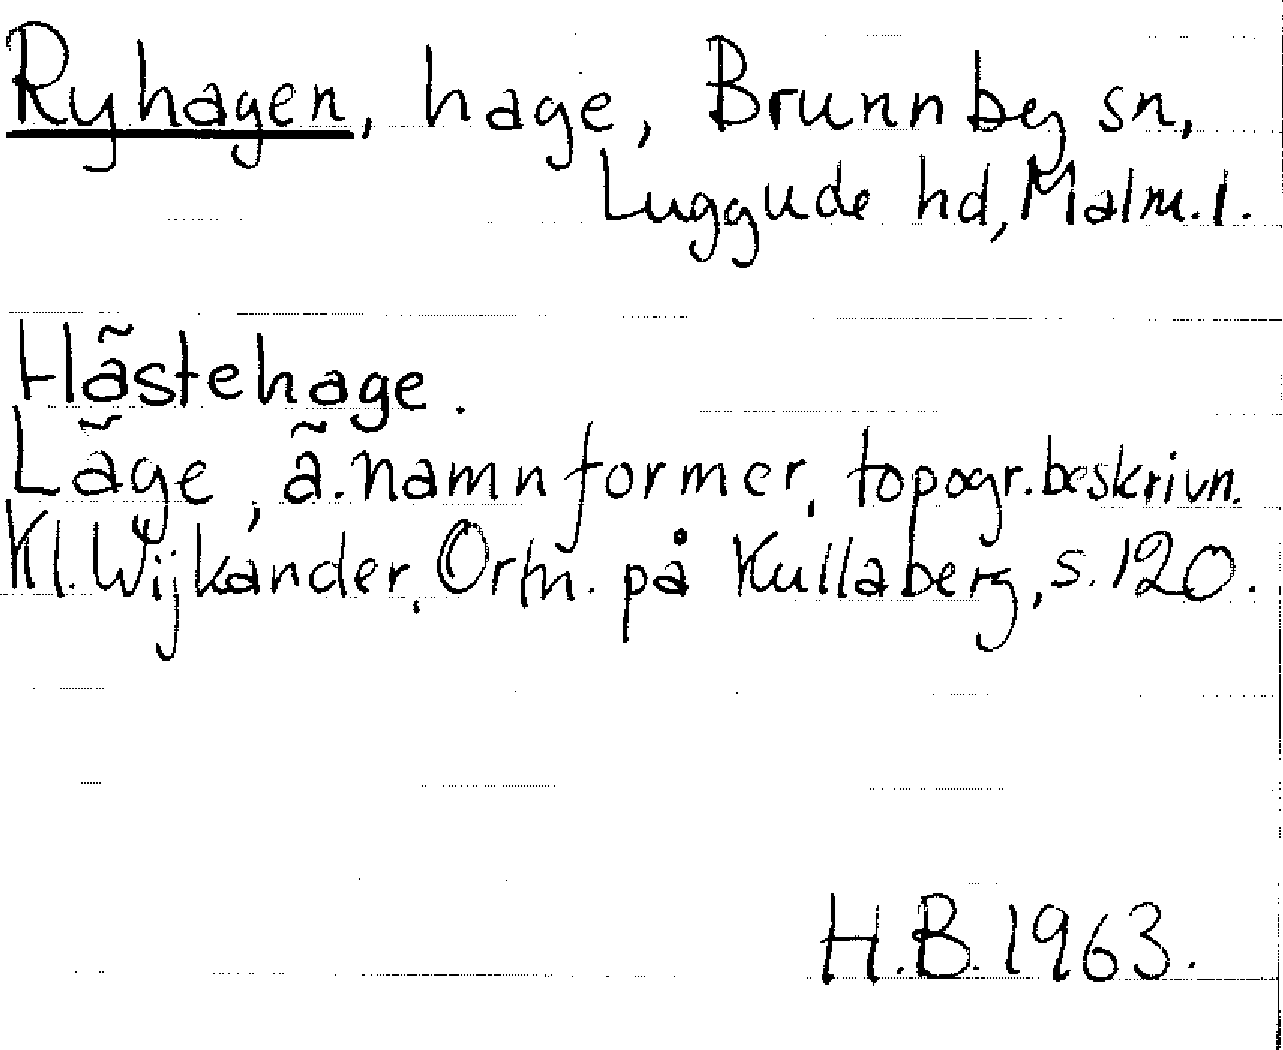 Ryhagen, hage, Brunnby sn,
Luggude hd, Malm. l.
Hästehage.
Läge, ä. namnformer, topogr. beskrivn.
Kl. Wijkander, Ortn. på Kullaberg, s. 120.
H.B. 1963.